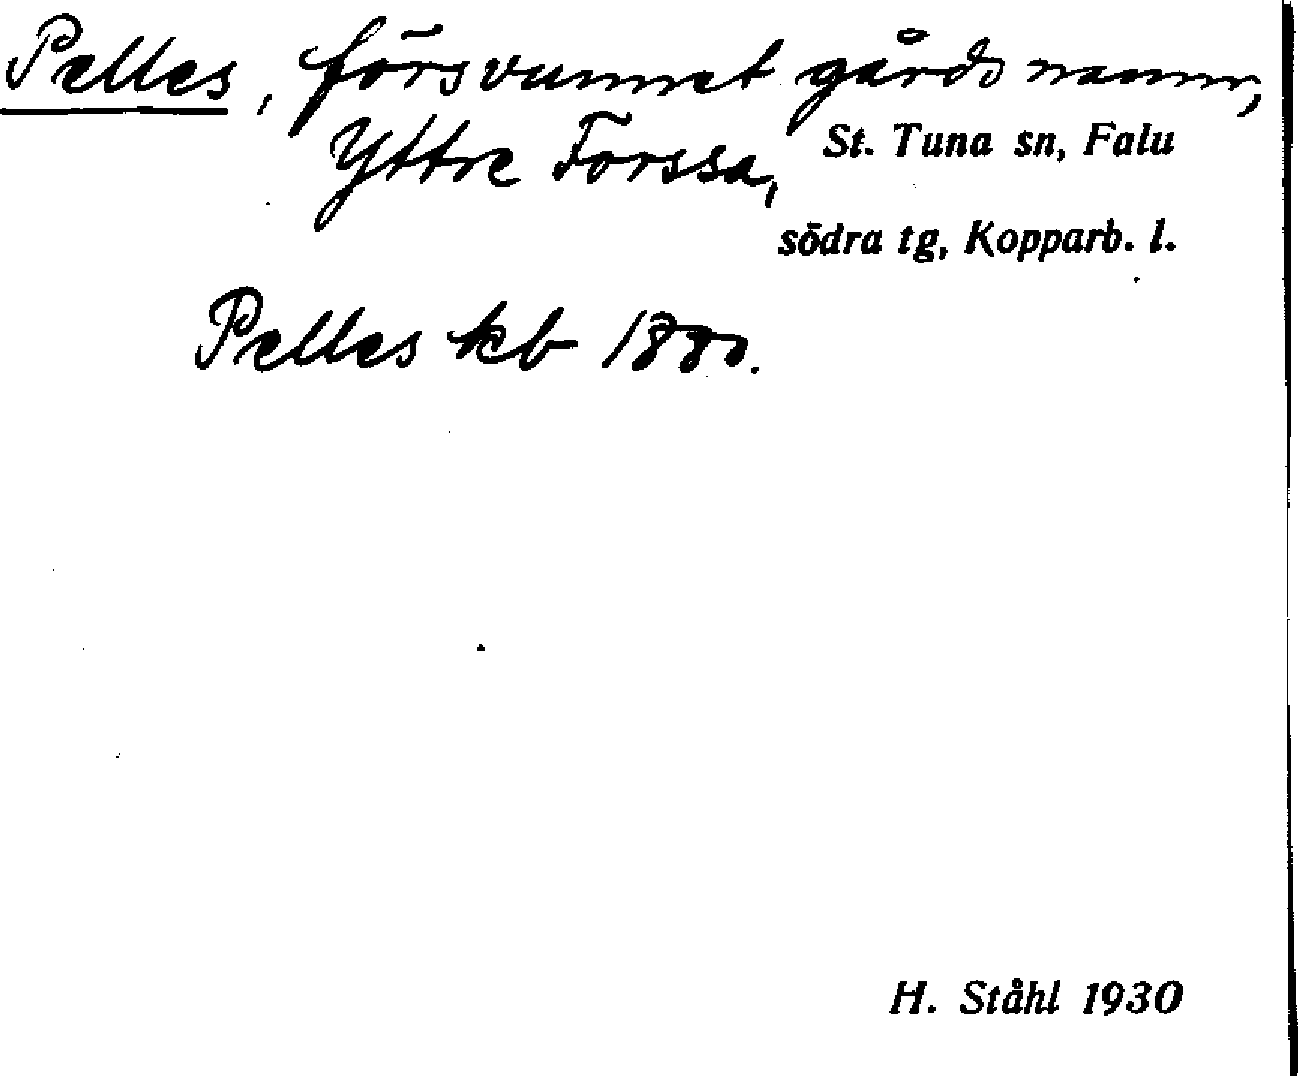 Pelles, försvunnet gårdsnamn,
Yttre Forssa, St. Tuna sn, Falu
södra tg, Kopparb. l.
Pelles kb 1880.
H. Ståhl 1930